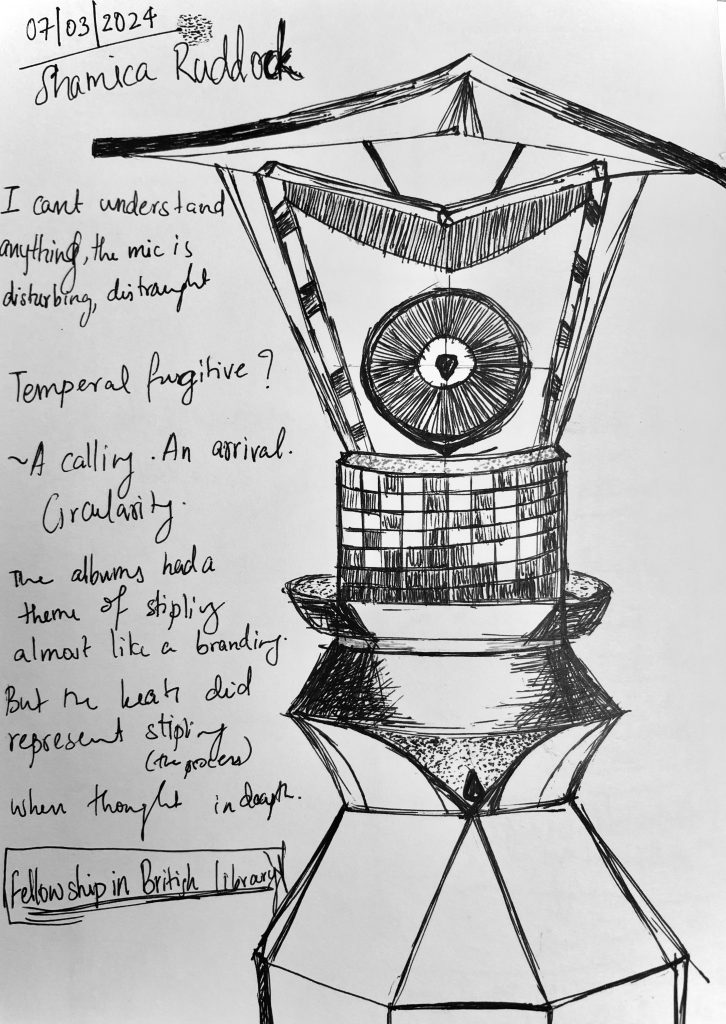 07/03/2024
Shamica Ruddock
I cant understand
anything, the mic is
disturbing, distraught
Temperal furgitive ?
~A calling . An arrival.
Circularity.
The albums had a
theme of stipling
almost like a branding.
But the beats did
represent stipling
(the process)
when thought in deapth.
Fellowship in British Library